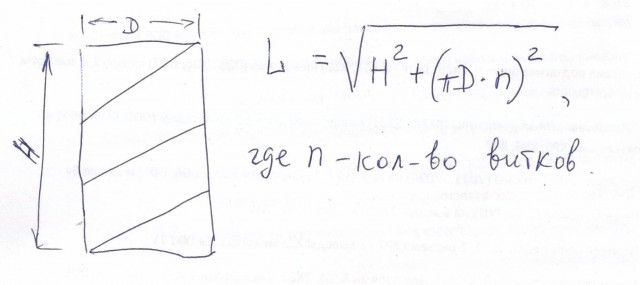 D
H
L = √H² + (πD·n)²,
где n - кол-во витков.